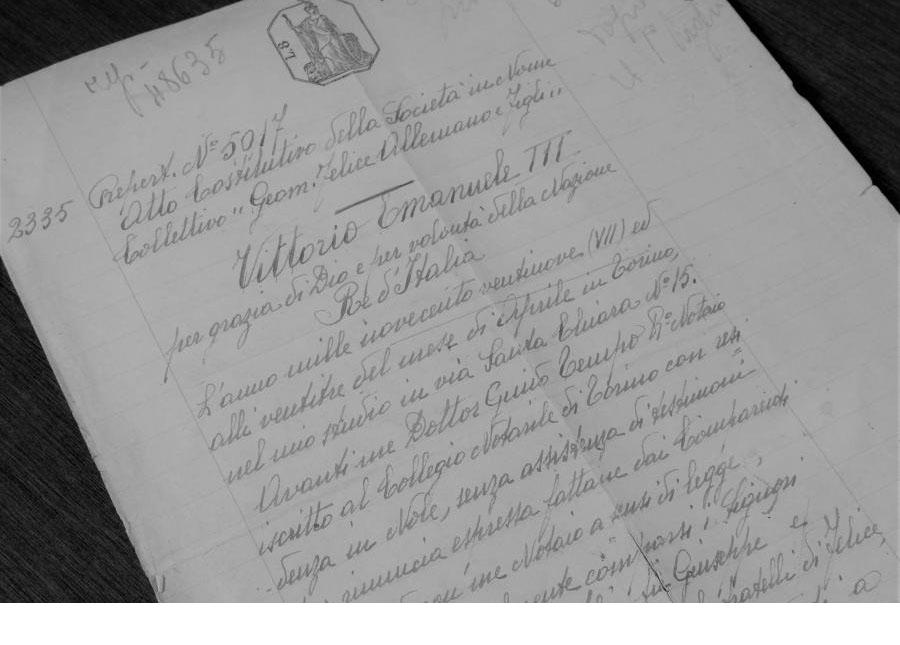 48635
L.8
Repert. Nº 5017
2335
Atto Costitutivo della Società in Nome
Collettivo "Geom. Felice Villemano e Figli"
Vittorio Emanuele III
per grazia di Dio e per volontà della Nazione
Re d'Italia
L'anno mille novecento ventinove (VII) ed
alli ventitre del mese di Aprile in Torino,
nel mio studio in via Santa Chiara Nº 15.
Avanti me Dottor Guido Tempo Rº Notaio
iscritto al Collegio Notarile di Torino con resi=
denza in Nole, senza assistenza di testimoni
rinuncia espressa fattane dai Comparenti
con me Notaio a sensi di legge,
comparsi i Signori
Giuseppe e
fratelli di Felice,
a